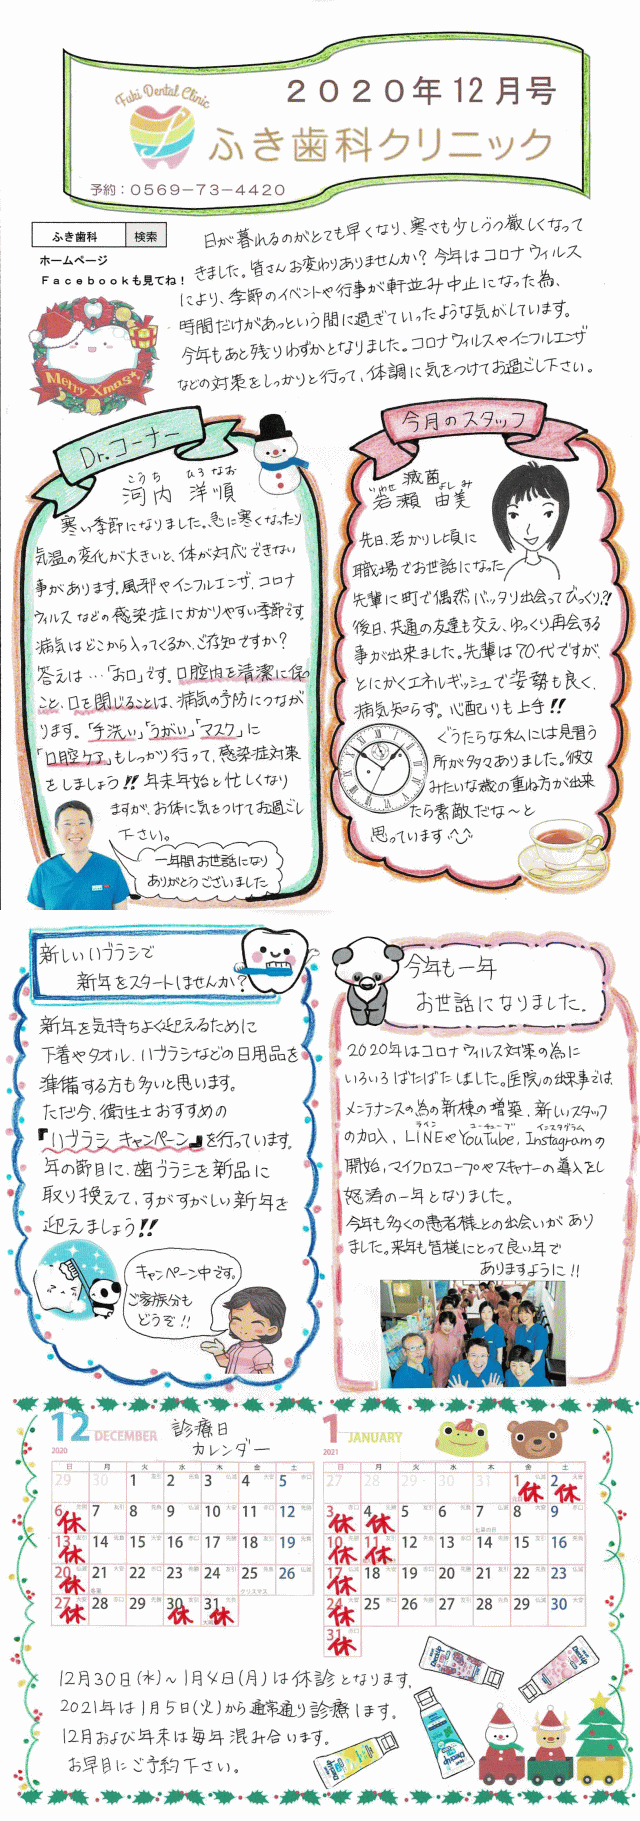 Fuki Dental Clinic
2020年12月号
ふき歯科クリニック
予約：0569-73-4420
ふき歯科 検索
ホームページ
Facebookも見てね！
Merry Xmas
日が暮れるのがとても早くなり、寒さも少しづつ厳しくなって
きました。皆さんお変わりありませんか？今年はコロナウィルス
により、季節のイベントや行事が軒並み中止になった為、
時間だけがあっという間に過ぎていったような気がしています。
今年もあと残りわずかとなりました。コロナウィルスやインフルエンザ
などの対策をしっかりと行って、体調に気をつけてお過ごし下さい。
Dr.コーナー
こうち ひろなお
河内 洋順
寒い季節になりました。急に寒くなったり
気温の変化が大きいと、体が対応できない
事があります。風邪やインフルエンザ、コロナ
ウィルスなどの感染症にかかりやすい季節です。
病気はどこから入ってくるか、ご存知ですか？
答えは…「お口」です。口腔内を清潔に保つ
こと、口を閉じることは、病気の予防につなが
ります。「手洗い」「うがい」「マスク」に
「口腔ケア」もしっかり行って、感染症対策
をしましょう!! 年末年始と忙しくなり
ますが、お体に気をつけてお過ごし
下さい。
一年間お世話になり
ありがとうございました
今月のスタッフ
滅菌
いわせ よしみ
岩瀬 由美
先日、若かりし頃に
職場でお世話になった
先輩に町で偶然バッタリ出会ってびっくり?!
後日、共通の友達も交え、ゆっくり再会する
事が出来ました。先輩は70代ですが、
とにかくエネルギッシュで姿勢も良く、
病気知らず。心配りも上手!!
ぐうたらな私には見習う
所が多々ありました。彼女
みたいな歳の重ね方が出来
たら素敵だな〜と
思っています^^
新しいハブラシで
新年をスタートしませんか？
新年を気持ちよく迎えるために
下着やタオル、ハブラシなどの日用品を
準備する方も多いと思います。
ただ今、衛生士おすすめの
『ハブラシ キャンペーン』を行っています。
年の節目に、歯ブラシを新品に
取り換えて、すがすがしい新年を
迎えましょう!!
キャンペーン中です。
ご家族分も
どうぞ!!
今年も一年
お世話になりました。
2020年はコロナウィルス対策の為に
いろいろばたばたしました。医院の出来事では、
メンテナンスの為の新棟の増築、新しいスタッフ
ライン ユーチューブ インスタグラム
の加入、LINEやYouTube、Instagramの
開始、マイクロスコープやスキャナーの導入をし
怒涛の一年となりました。
今年も多くの患者様との出会いがあり
ました。来年も皆様にとって良い年で
ありますように!!
12 DECEMBER
2020
診療日
カレンダー
日 月 火 水 木 金 土
29 30 1 2 3 4 5
6休 7 8 9 10 11 12
13休 14 15 16 17 18 19
20休 21 22 23 24 25 26
冬至 クリスマス
27休 28 29 30休 31休
1 JANUARY
2021
日 月 火 水 木 金 土
27 28 29 30 31 1休 2休
3休 4休 5 6 7 8 9
10休 11休 12 13 14 15 16
17休 18 19 20 21 22 23
24休 25 26 27 28 29 30
31休
12月30日(水)〜1月4日(月)は休診となります。
2021年は1月5日(火)から通常通り診療します。
12月および年末は毎年混み合います。
お早目にご予約下さい。